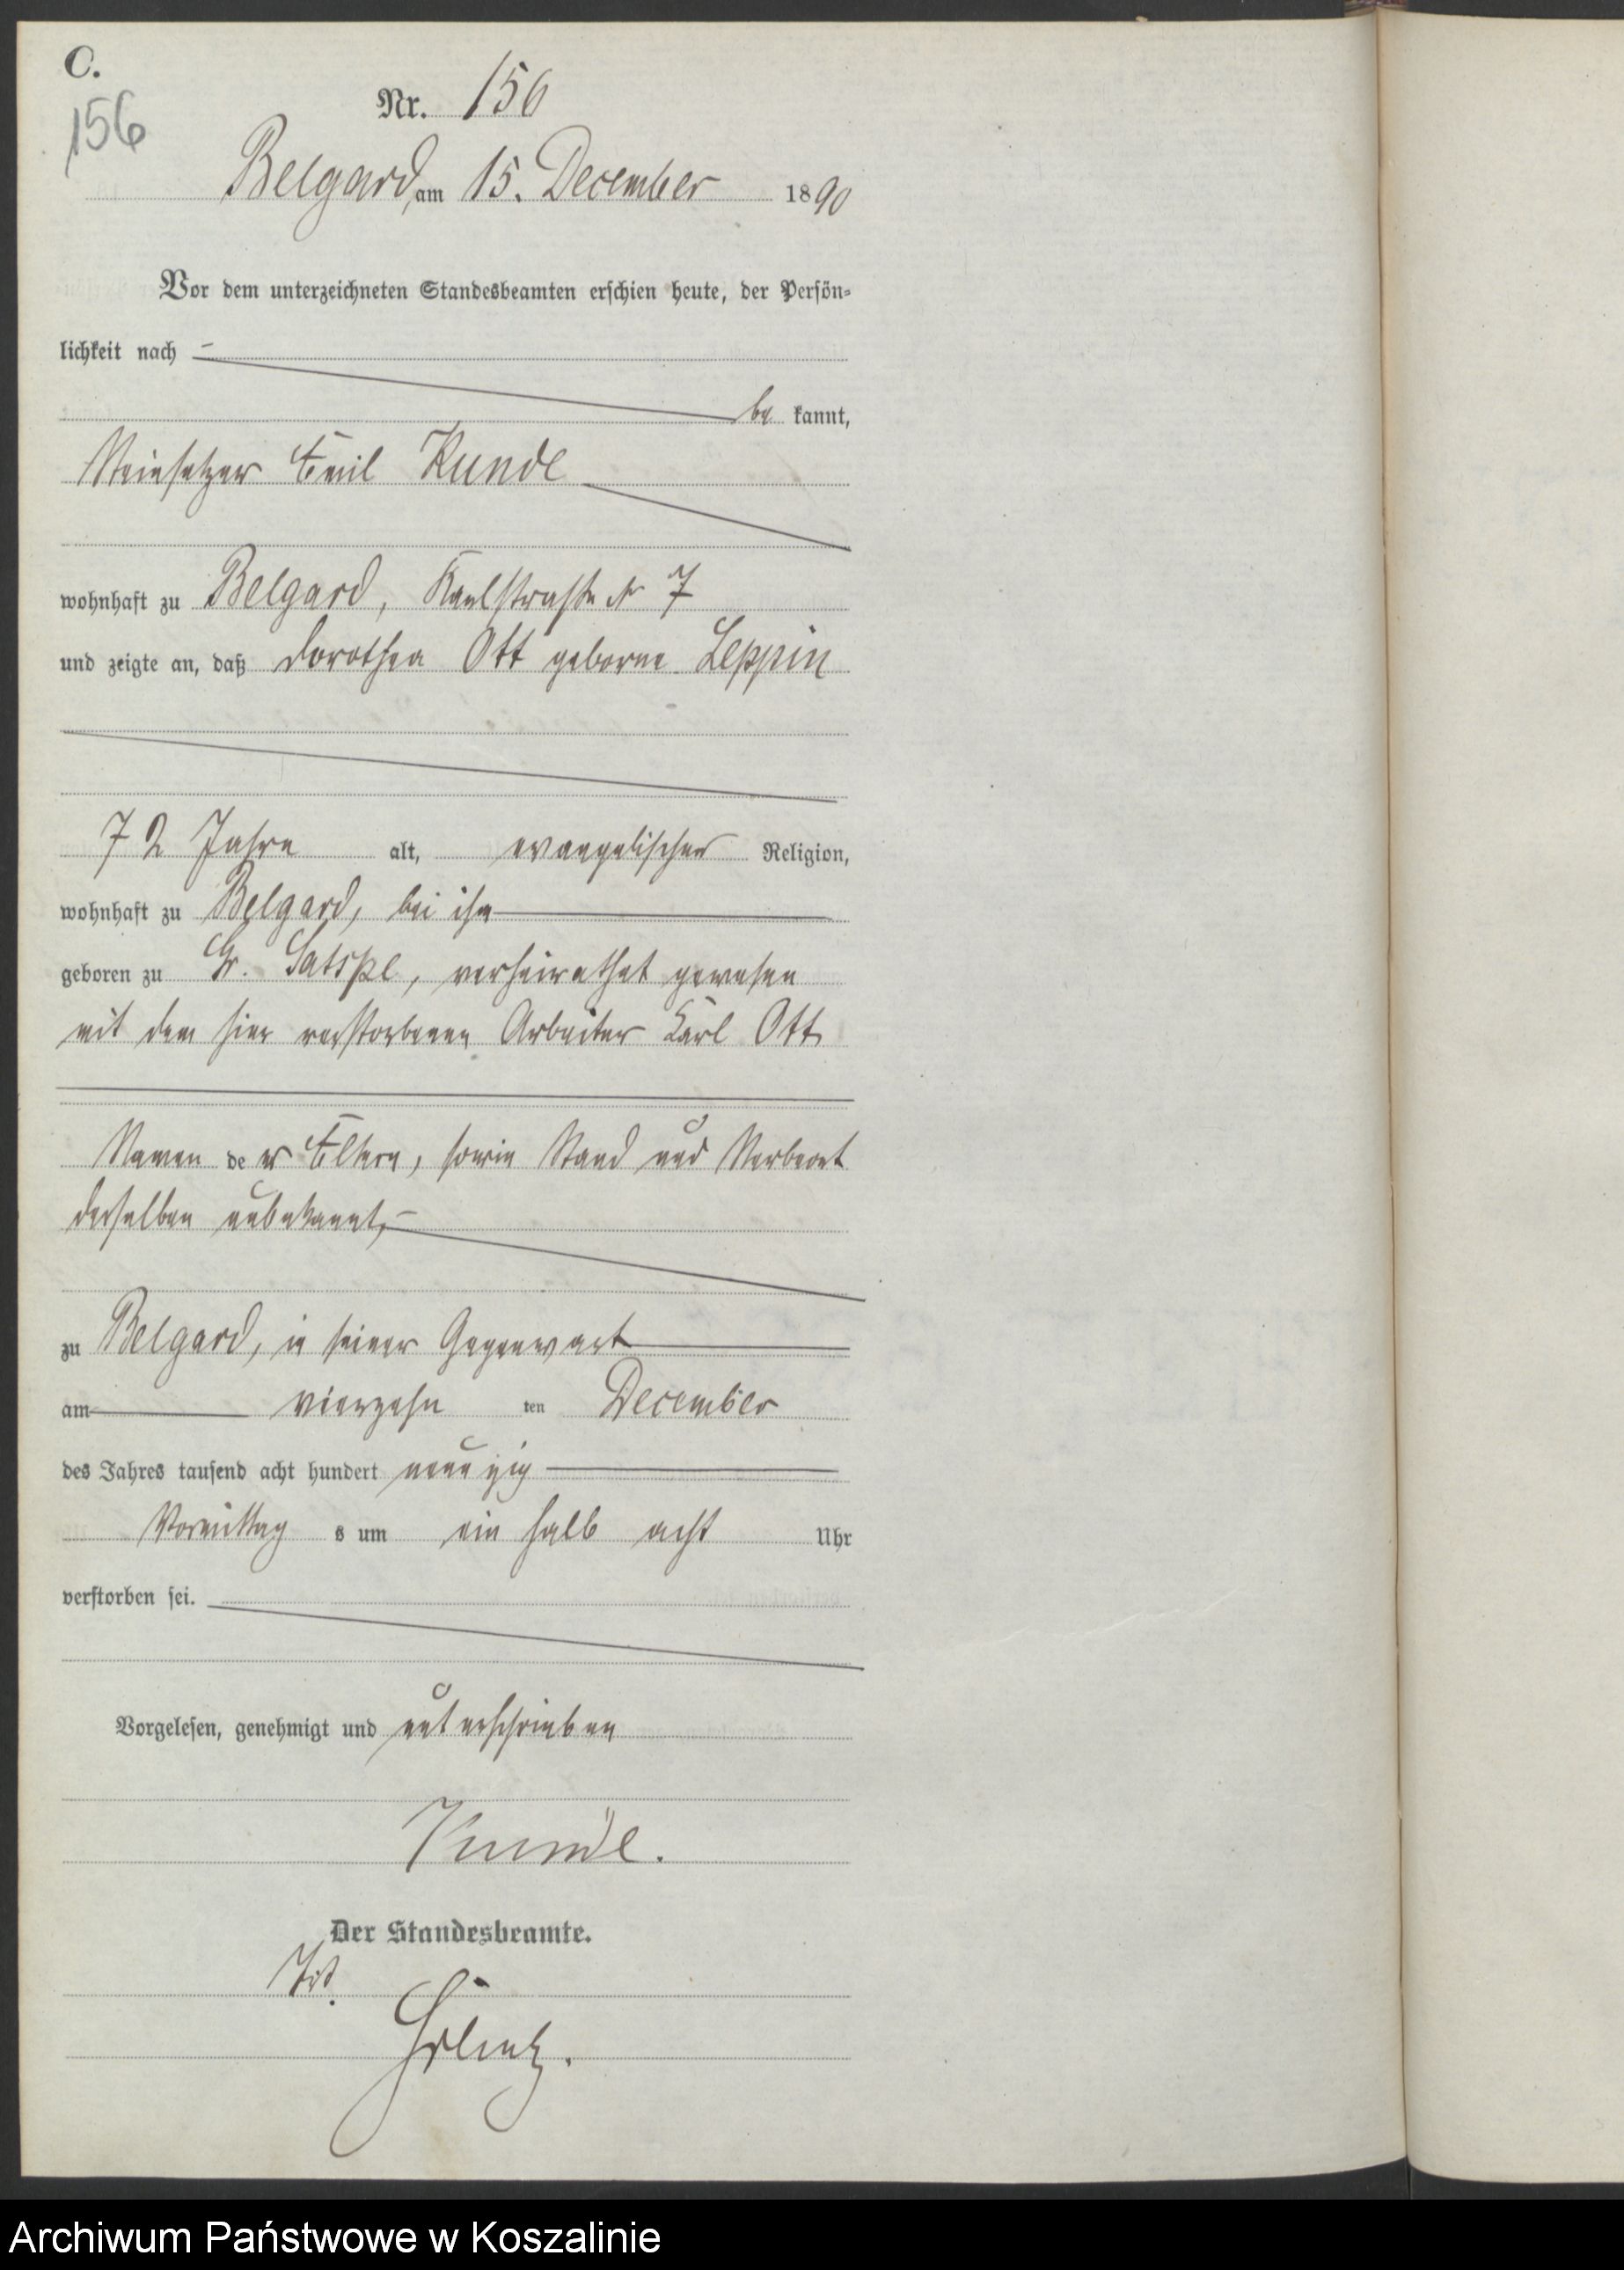 C.
156
Nr. 156
Belgard, am 15. December 1890
Vor dem unterzeichneten Standesbeamten erschien heute, der Persön-
lichkeit nach
be kannt,
Steinsetzer Emil Kunde
wohnhaft zu Belgard, Karlstraße № 7
und zeigte an, daß Dorothea Ott geborne Leppin
72 Jahre alt, evangelischer Religion,
wohnhaft zu Belgard, bei ihm
geboren zu Gr. Satspe, verheirathet gewesen
mit dem hier verstorbenen Arbeiter Karl Ott
Namen de r Eltern, sowie Stand und
derselben unbekannt,
zu Belgard, in seiner Gegenwart
am vierzehn ten December
des Jahres tausend acht hundert neunzig
Vormittag s um ein halb acht Uhr
verstorben sei.
Vorgelesen, genehmigt und unterschrieben
Kunde.
Der Standesbeamte.
Archiwum Państwowe w Koszalinie